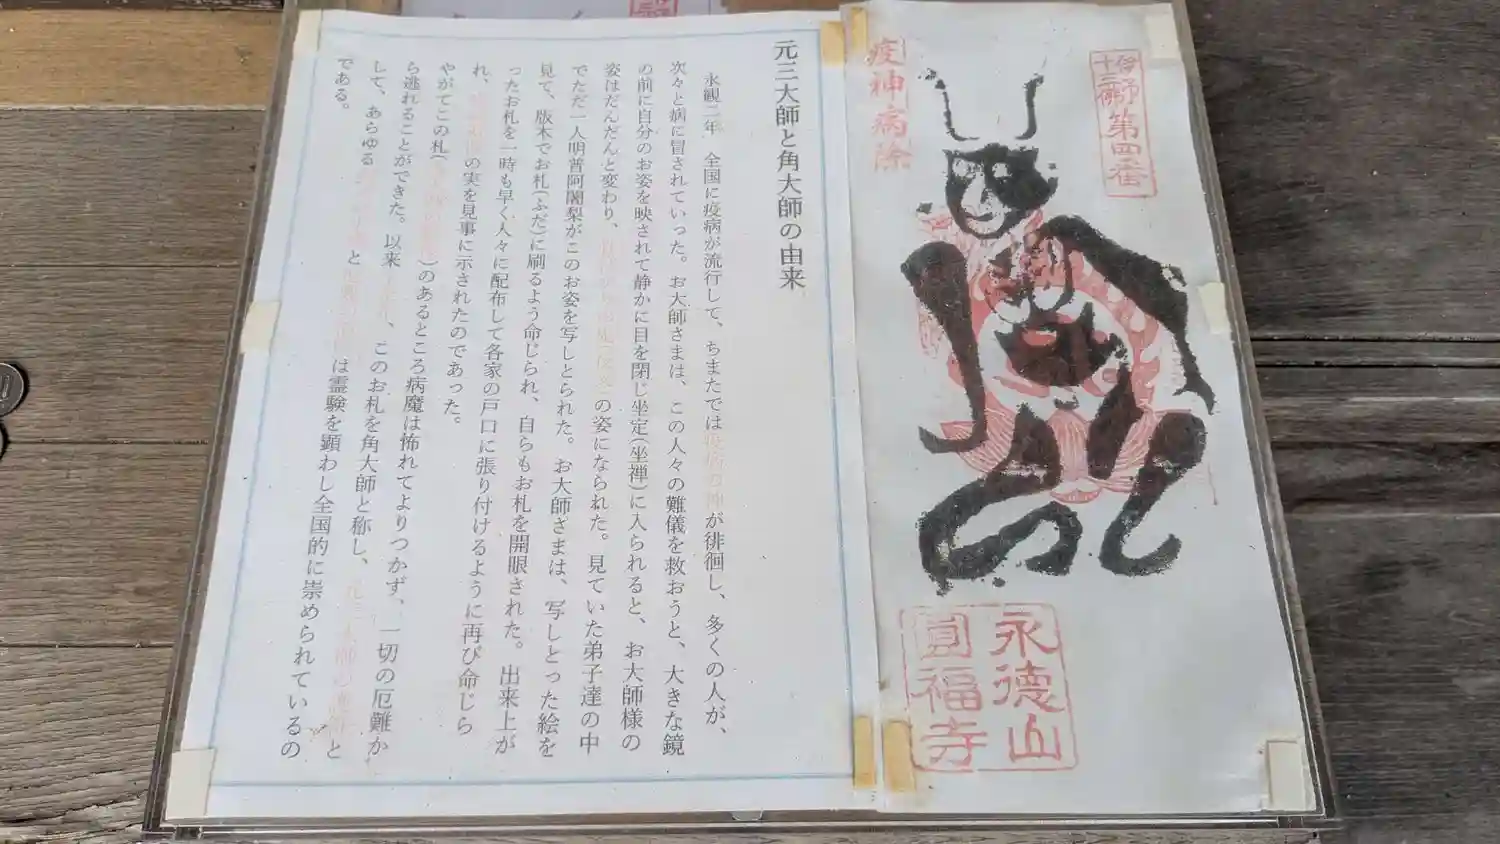 伊予
十三佛
第四番
疫神病除
永德山
圓福寺
元三大師と角大師の由来
永観二年 全国に疫病が流行して、ちまたでは疫病の神が徘徊し、多くの人が、
次々と病に冒されていった。お大師さまは、この人々の難儀を救おうと、大きな鏡
の前に自分のお姿を映されて静かに目を閉じ坐定(坐禅)に入られると、お大師様の
姿はだんだんと変わり、の姿になられた。見ていた弟子達の中
でただ一人明普阿闍梨がこのお姿を写しとられた。お大師さまは、写しとった絵を
見て、版木でお札(ふだ)に刷るよう命じられ、自らもお札を開眼された。出来上が
ったお札を一時も早く人々に配布して各家の戸口に張り付けるように再び命じら
れ、の実を見事に示されたのであった。
やがてこの札()のあるところ病魔は怖れてよりつかず、一切の厄難か
ら逃れることができた。以来、このお札を角大師と称し、元三大師の と
して、あらゆる と は霊験を顕わし全国的に崇められているの
である。